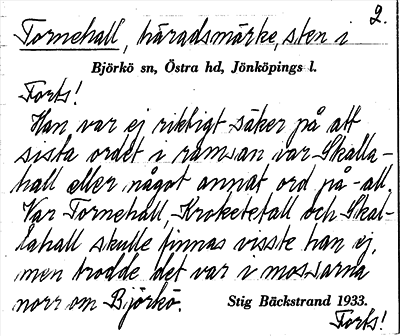 2.
Tornehall, häradsmärke, sten i
Björkö sn, Östra hd, Jönköpings l.
Forts!
Han var ej riktigt säker på att
sista ordet i ramsan var Skalla-
hall eller något annat ord på -all.
Var Tornehall, Kroketefall och Skal-
lahall skulle finnas visste han ej,
men trodde det var i mossarna
norr om Björkö. Stig Bäckstrand 1933.
Forts!